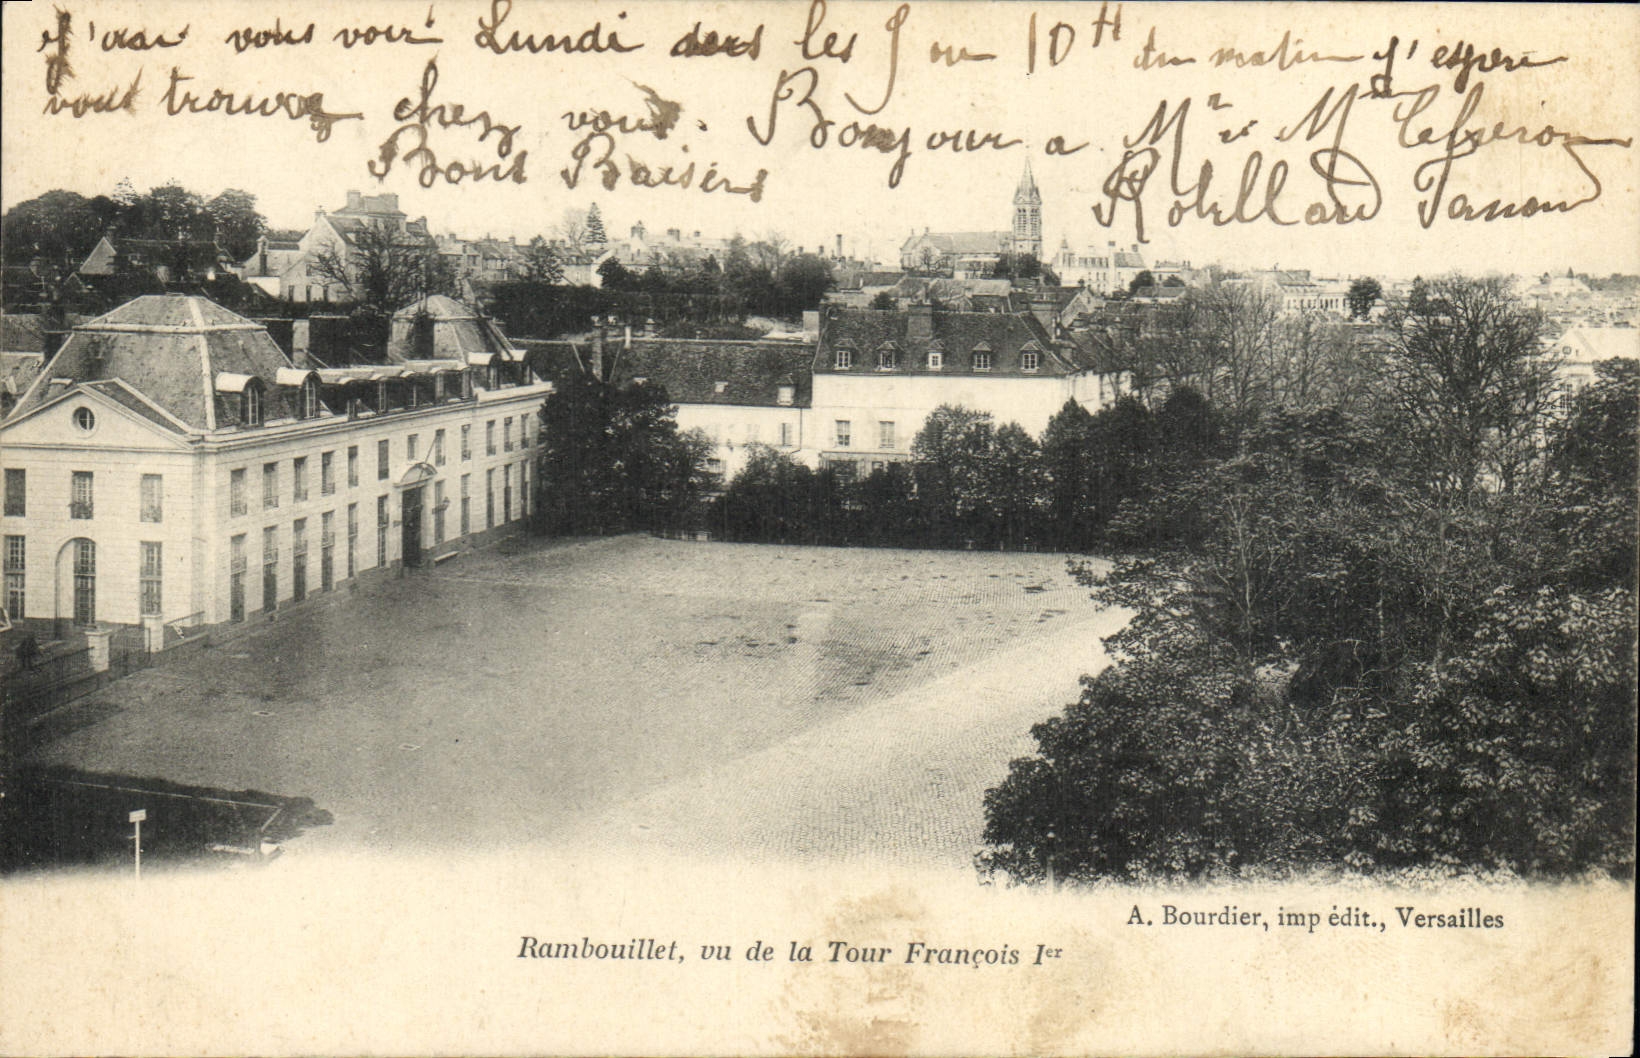 J'irai vous voir Lundi vers les 9 ou 10 H du matin j'espere
vous trouvez chez vous. Bonjour a Mr et Mme
Bons Baisers Robillard
A. Bourdier, imp édit., Versailles
Rambouillet, vu de la Tour François Ier